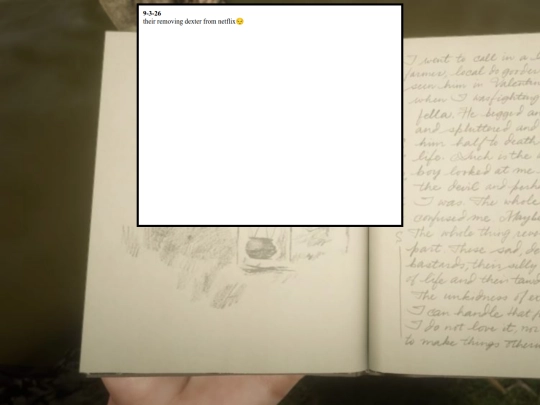 9-3-26
their removing dexter from netflix😔
I went to call in a
farmer, local do gooder
seen him in Valentin
when I was fighting
fella. He begged an
and spluttered and
him half to death
life. Which is the
boy looked at me
the devil and perh
I was. The whole
confused me. Maybe
The whole thing rem
part. These sad, do
basterds, their silly
of life and their
The unkindness of
I can handle that
I do not love it, nor
to make things